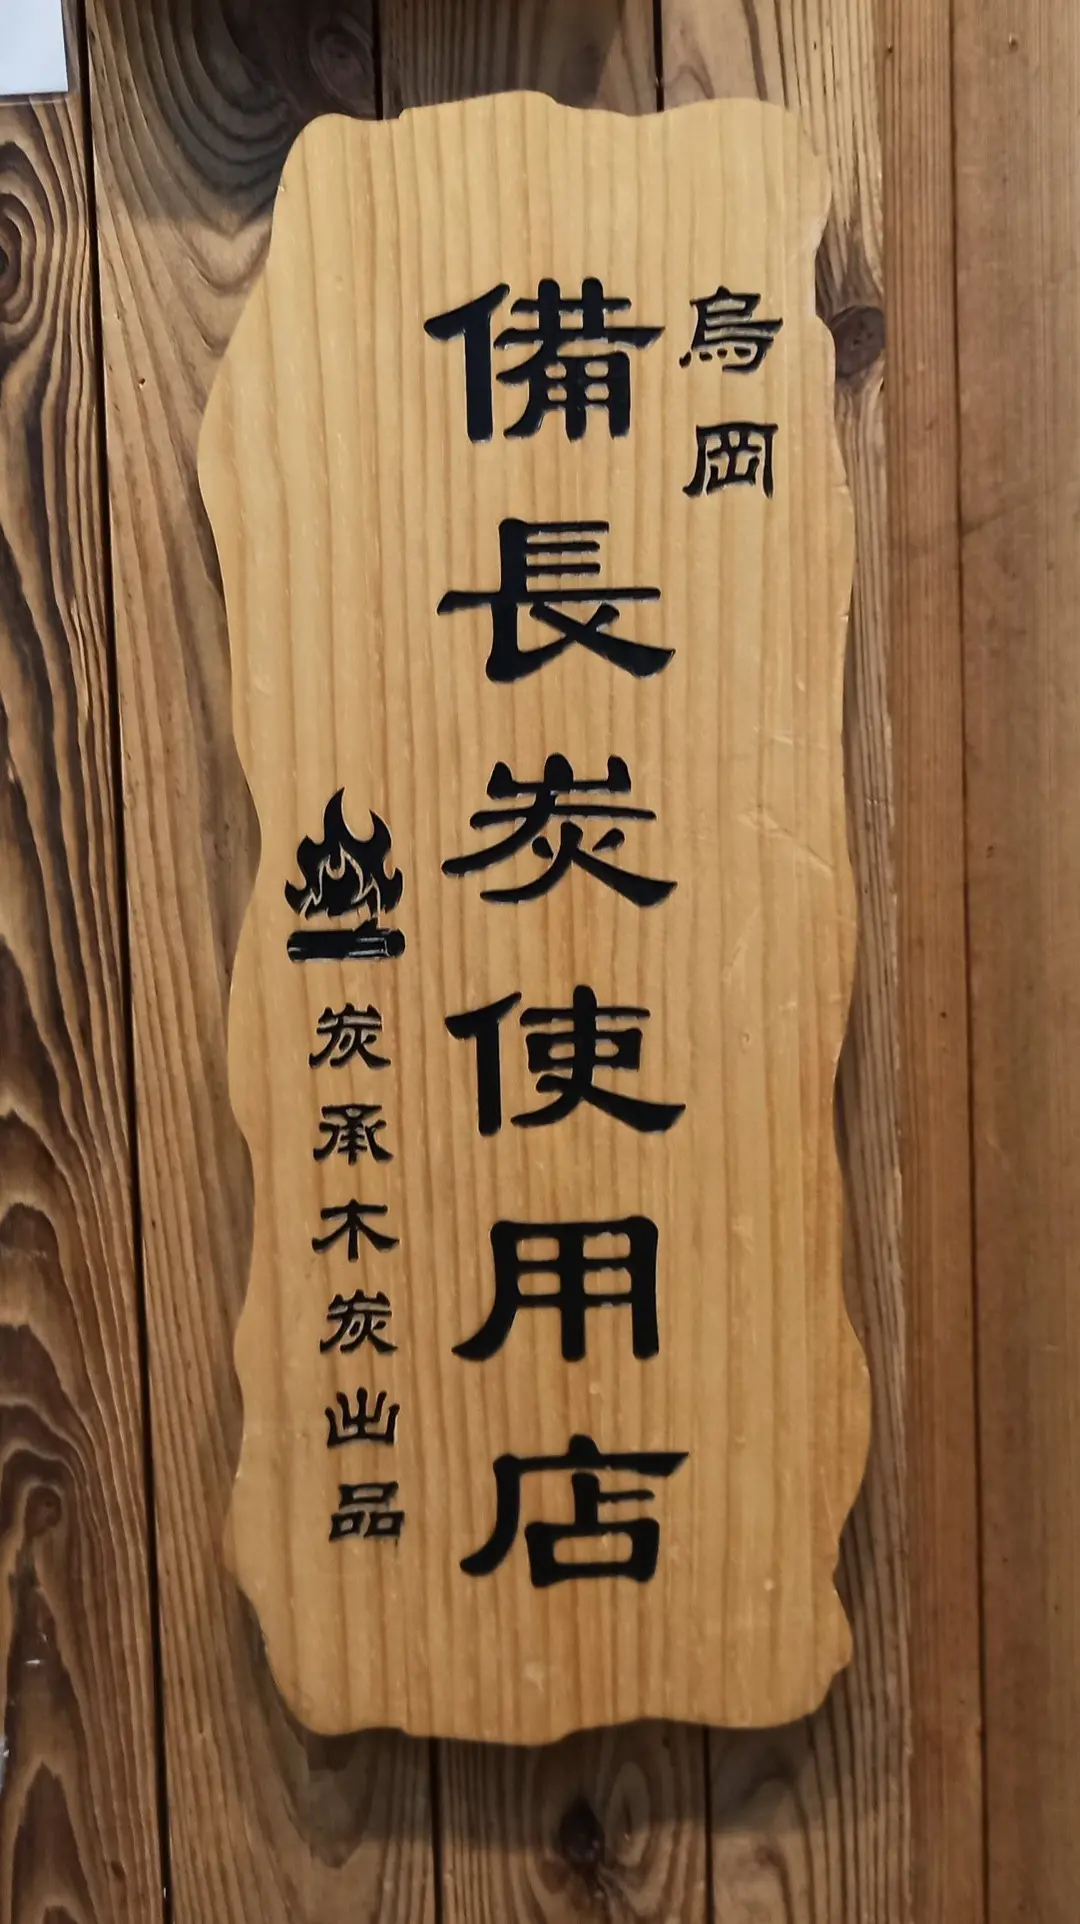 烏岡
備長炭使用店
炭承木炭出品